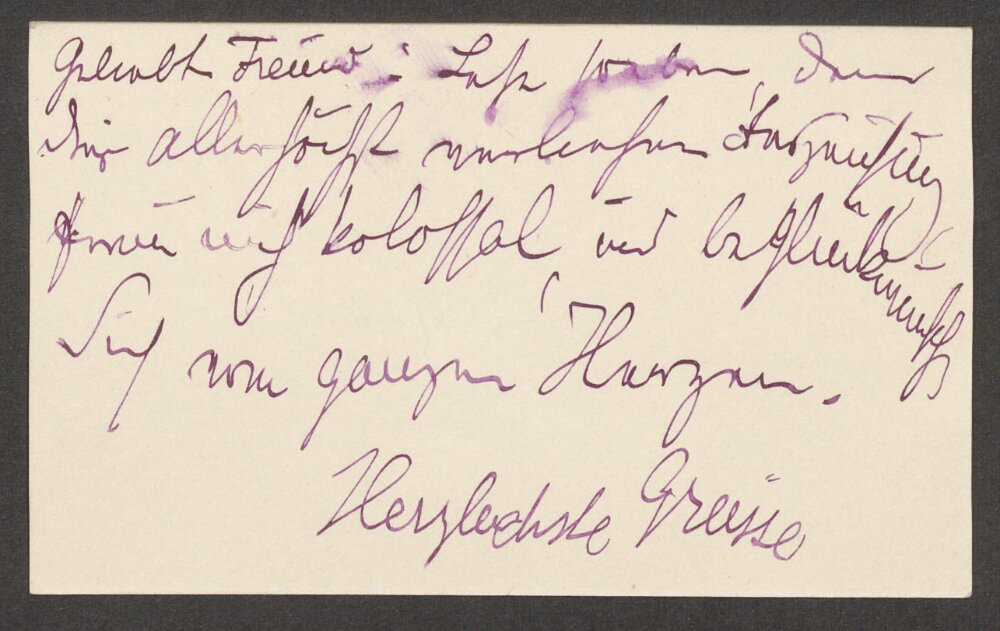 Geliebter Freund: Lese soeben, dass
Dir allerhöchst verliehene Auszeichnung
freue mich kolossal und beglückwünsche
Dich vom ganzen Herzen.
Herzlichste Grüsse